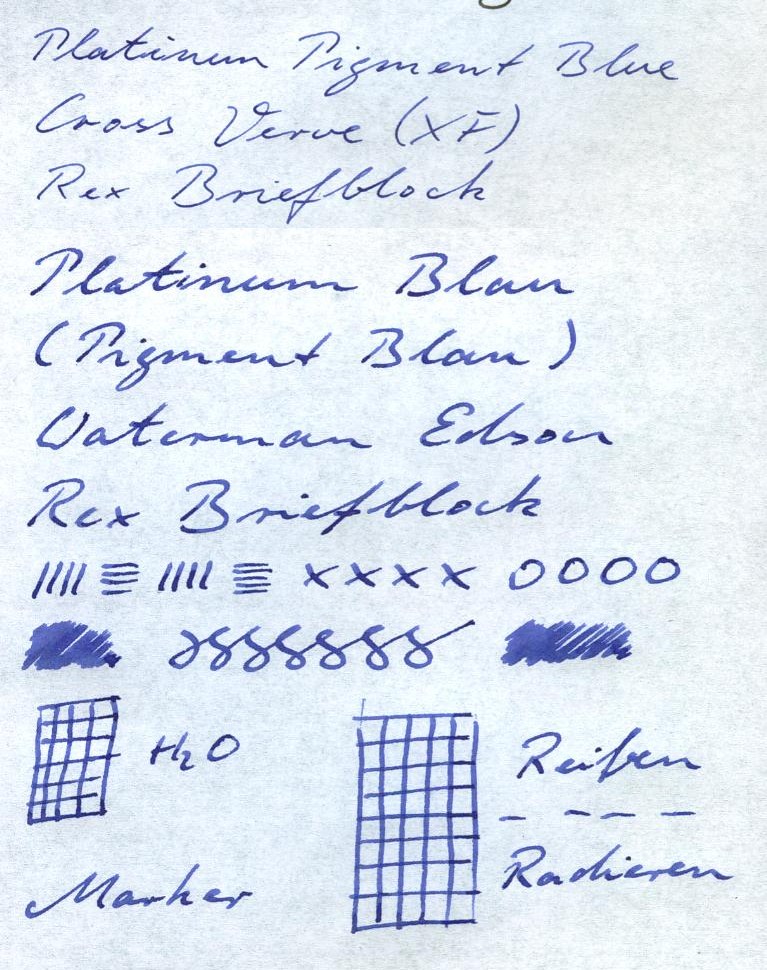 Platinum Pigment Blue
Cross Verve (XF)
Rex Briefblock
Platinum Blau
(Pigment Blau)
Waterman Edson
Rex Briefblock
x x x x O O O O
H2O
Reiben
Radieren
Marker